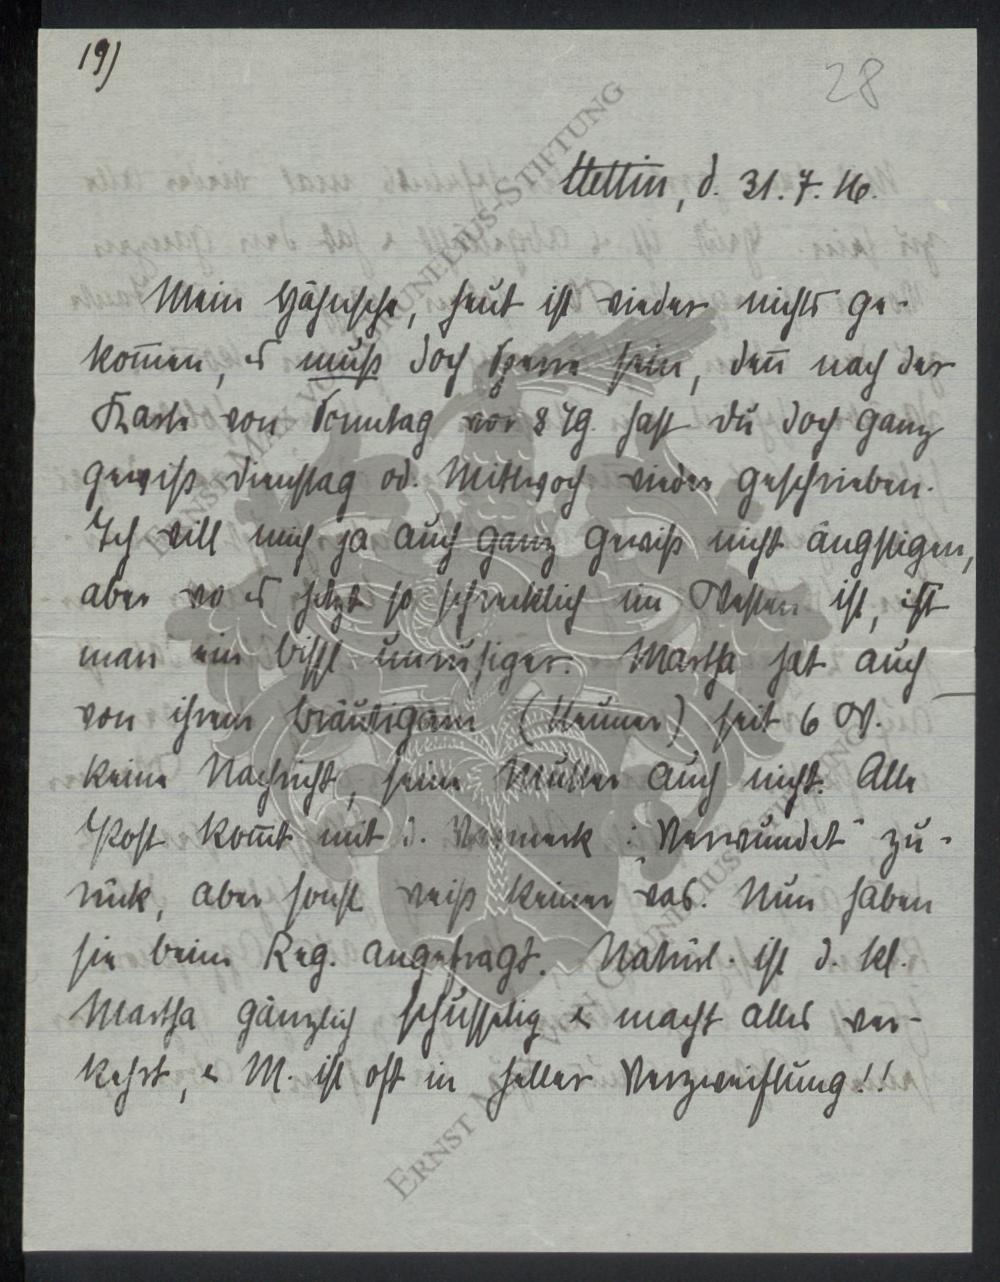 19)
28
Stettin, d. 31.7.16.
Mein Hähnsche, heut ist wieder nichts ge-
kom̄en, es muß doch Sperre sein, den̄ nach der
Karte von Sonntag vor 8 Tg. hast Du doch ganz
gewiß Dienstag od. Mittwoch wieder geschrieben.
Ich will mich ja auch ganz gewiß nicht ängstigen,
aber wo es jetzt so schrecklich im Westen ist, ist
man ein bissl unruhiger. Martha hat auch
von ihrem Bräutigam () seit 6 W.
keine Nachricht, seine Mutter auch nicht. Alle
Post kom̄t mit d. Vermerk: "Verwundet" zu-
rück, aber sonst weiß keiner was. Nun haben
sie beim Reg. angefragt. Natürl. ist d. kl.
Martha gänzlich schusslig & macht alles ver-
kehrt, & M. ist oft in heller Verzweiflung!!
ERNST MAX VON GRUNELIUS-STIFTUNG
ERNST MAX VON GRUNELIUS-STIFTUNG